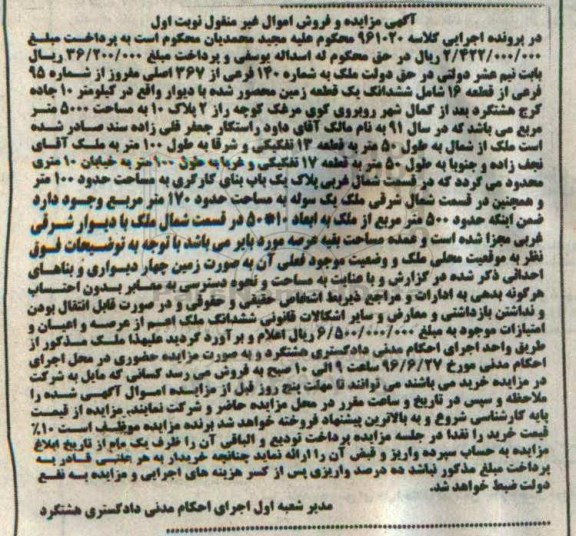 آگهی مزایده و فروش اموال غیر منقول نوبت اول
در پرونده اجرایی کلاسه ۹۶۱۰۲۰ محکوم علیه مجید محمدیان محکوم است به پرداخت مبلغ
۲/۴۲۲/۰۰۰/۰۰۰ ریال در حق محکوم له اسداله یوسفی و پرداخت مبلغ ۳۶/۲۰۰/۰۰۰ ریال
بابت نیم عشر دولتی در حق دولت ملک به شماره ۱۴۰ فرعی از ۳۶۷ اصلی مفروز از شماره ۹۵
فرعی از قطعه ۱۶ شامل ششدانگ یک قطعه زمین محصور شده با دیوار واقع در کیلومتر ۱۰ جاده
کرج هشتگرد بعد از کمال شهر روبروی کوی مرغک کوچه راز ۲ پلاک ۱۰ به مساحت ۵۰۰۰ متر
مربع می باشد که در سال ۹۱ به نام مالک آقای داود راستکار جعفر قلی زاده سند صادر شده
است ملک از شمال به طول ۵۰ متر به قطعه ۱۳ تفکیکی و شرقا به طول ۱۰۰ متر به ملک آقای
نجف زاده و جنوبا به طول ۵۰ متر به قطعه ۱۷ تفکیکی و غربا به طول ۱۰۰ متر به خیابان ۱۰ متری
محدود می گردد که در قسمت شمال غربی پلاک یک باب بنای کارگری به مساحت حدود ۱۰۰ متر
و همچنین در قسمت شمال شرقی ملک یک سوله به مساحت حدود ۱۷۰ متر مربع وجود دارد
ضمن اینکه حدود ۵۰۰ متر مربع از ملک به ابعاد ۱۰*۵۰ در قسمت شمال ملک با دیوار شرقی
غربی مجزا شده است و عمده مساحت بقیه عرصه مورد بایر می باشد با توجه به توضیحات فوق
نظر به موقعیت محلی ملک و وضعیت موجود فعلی آن به صورت زمین چهار دیواری و بناهای
احداثی ذکر شده در گزارش و با عنایت به مساحت و نحوه دسترسی به معابر بدون احتساب
هرگونه بدهی به ادارات و مراجع ذیربط اشخاص حقیقی و حقوقی و در صورت قابل انتقال بودن
و نداشتن بازداشتی و معارض و سایر اشکالات قانونی ششدانگ ملک اعم از عرصه و اعیان و
امتیازات موجود به مبلغ ۶/۵۰۰/۰۰۰/۰۰۰ ریال اعلام و برآورد گردید علیهذا ملک مذکور از
طریق واحد اجرای احکام مدنی دادگستری هشتگرد و به صورت مزایده حضوری در محل اجرای
احکام مدنی مورخ ۹۶/۶/۲۷ ساعت ۹ الی ۱۰ صبح به فروش می رسد کسانی که مایل به شرکت
در مزایده خرید می باشند می توانند تا مهلت پنج روز قبل از مزایده اموال آگهی شده را
ملاحظه و سپس در تاریخ و ساعت مقرر در محل مزایده حاضر و شرکت نمایند. مزایده از قیمت
پایه کارشناسی شروع و به بالاترین پیشنهاد فروخته خواهد شد برنده مزایده موظف است ۱۰٪
قیمت خرید را نقدا در جلسه مزایده پرداخت تودیع و الباقی آن را ظرف یک ماه از تاریخ ابلاغ
مزایده به حساب سپرده واریز و قبض آن را ارائه نماید چنانچه خریدار به هر علتی قادر به
پرداخت مبلغ مذکور نباشد ده درصد واریزی پس از کسر هزینه های اجرایی و مزایده به نفع
دولت ضبط خواهد شد.
مدیر شعبه اول اجرای احکام مدنی دادگستری هشتگرد